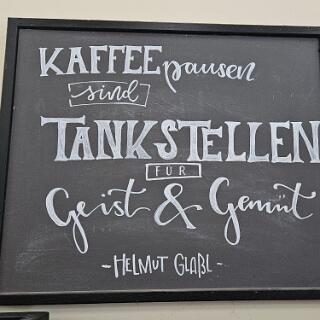 KAFFEEpausen
sind
TANKSTELLEN
FÜR
Geist & Gemüt
- HELMUT GLAßL -